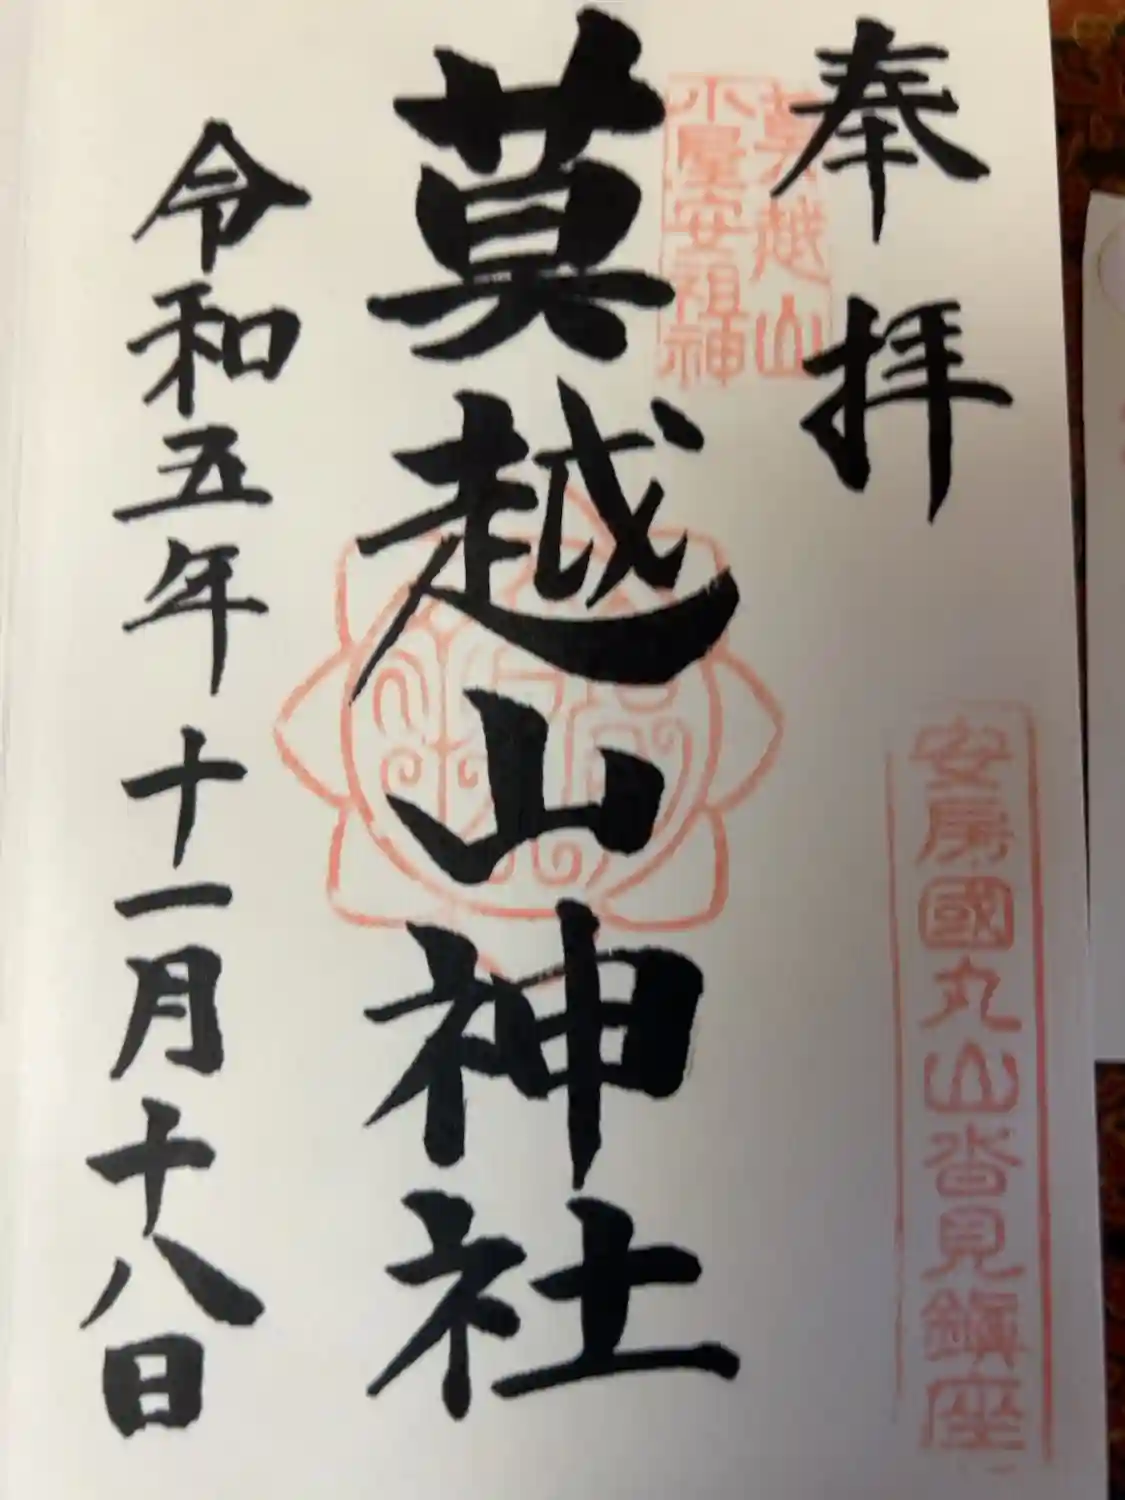 奉拝
莫越山
小屋安祖神
安房國丸山沓見鎮座
莫越山神社
令和五年十一月十八日